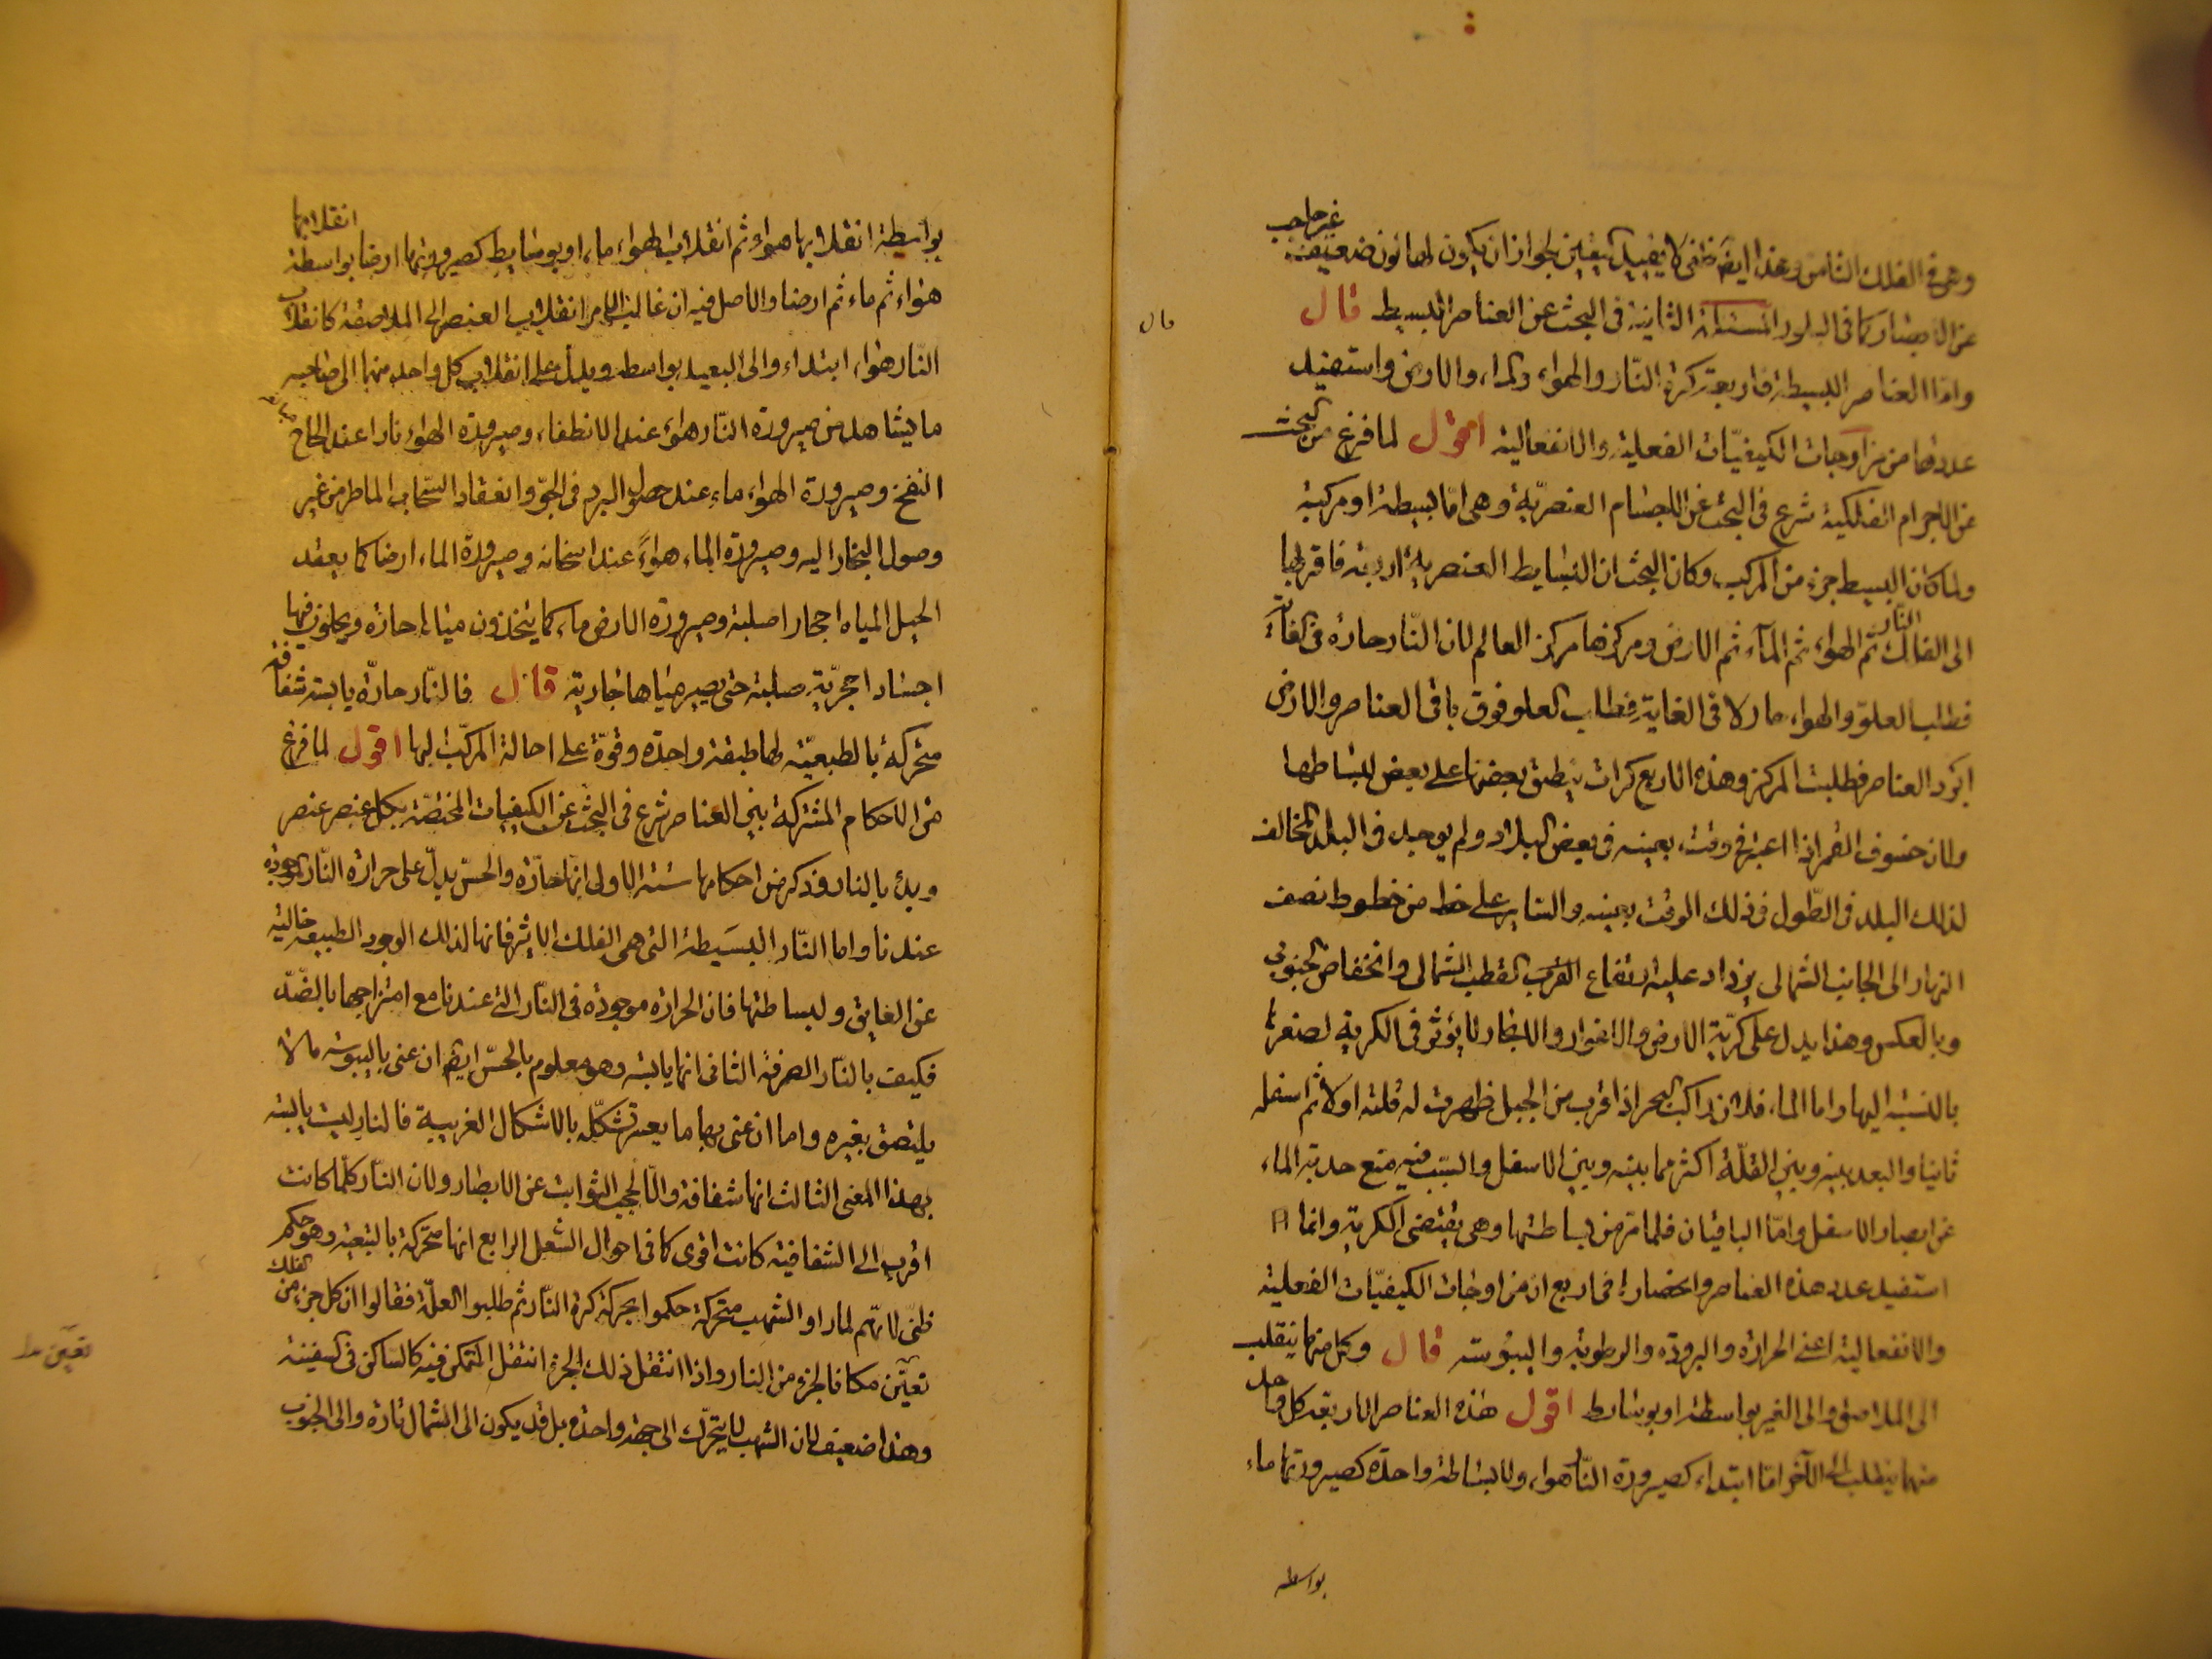 وهى فى الفلك الثامن وهذا ايضا ظنى لا يفيد اليقين لجواز ان يكون لها لون ضعيف غير حاجب
عن الابصار كما فى البلور المسئلة الثانية فى البحث عن العناصر البسيط قال
قال
واما العناصر البسيطة فاربعة كرة النّار والهواء والماء والارض واستفيد
عددها من مزاوجات الكيفيّات الفعلية والانفعالية اقول لما فرغ من البحث
عن الاجرام الفلكية شرع فى البحث عن الاجسام العنصريّة وهى امّا بسيطة او مركبة
ولما كان البسيط جزء من المركب وكان البحث ان البسايط العنصرية اربعة فاقربها
الى الفلك النّار ثم الهواء ثم الماء ثم الارض ومركزها مركز العالم لان النّار حارة فى الغاية
فطلب العلوّ والهواء حار لا فى الغاية فطلب العلو فوق باقى العناصر والارض
ابرد العناصر فطلبت المركز وهذه الاربع كرات ينطبق بعضها على بعض لبساطها
ولان خسوف القمر اذا اعتبر فى وقت بعينه فى بعض البلاد ولم يوجد فى البلد المخالف
لذلك البلد فى الطّول فى ذلك الوقت بعينه والساير على خط من خطوط نصف
النهار الى الجانب الشمالى يزداد عليه ارتفاع القرب القطب الشمالى وانخفاض الجنوبى
وبالعكس وهذا يدل على كريّة الارض والاغوار و لا يؤثر فى الكرية لصغرها
بالنسبة اليها واما الماء فلان راكب البحر اذا قرب من الجبل ظهرت له قلته اولا ثم اسفله
ثانيا والبعد بينه وبين القلّة اكثر مما بينه وبين الاسفل والسبب فيه منع حدبة الماء
عن ابصار الاسفل وامّا الباقيان فلما مرّ من بساطتهما وهى يقتضى الكرية وانما
استفيد عدد هذه العناصر وانحصارها فى اربع ان مزاوجات الكيفيّات الفعلية
والانفعالية اعنى الحرارة والبرودة والرطوبة واليبوسة قال وكل منها ينقلب
الى الملاصق والى الغير بواسطة او بوسائط اقول هذه العناصر الاربعة كل واحد
منها ينقلب الى الآخر امّا ابتداء كصيرورة النّار هواء ولا بساطة واحدة كصيرورتها ماء
بواسطه
بواسطة انقلابها هواء ثم انقلاب الهواء ماء او بوسايط كصيرورتها ارضا بواسطة انقلابها
هواء ثم ماء ثم ارضا والاصل فيه ان غالب الامر انقلاب العنصر الى الملاصقة كانقلاب
النّار هواء ابتداء والى البعيد بواسطة ويدل على انقلاب كل واحد منها الى صاحبه
ما يشاهد من صيرورة النّار هواء عند الانطفاء وصيرورة الهواء نارا عند الحاح
النفخ وصيرورة الهواء ماء عند حصول البرد فى الجوّ وانعقاد السّحاب الماطر من غير
وصول البخار اليه وصيرورة الماء هواءً عند اسخانه وصيرورة الماء ارضا كما يعقد
الحيل المياه احجارا صلبة وصيرورة الارض ماء كما يتخذون مياها حارة ويحلون فيها
اجسادا حجريّة صلبة حتى يصير مياها جارية قال فالنّار حارّة يابسة شفافة
متحركة بالطبعيّة لها طبقة واحدة وقوّة على احالة المركّب اليها اقول لما فرغ
من الاحكام المشتركة بين العناصر شرع فى البحث عن الكيفيات المختصّة بكل عنصر عنصر
وبدء بالنار وذكر من احكامها ستة الاولى انّها حارّة والحسّ يدلّ على حرارة النّار الموجودة
عندنا واما النّار البسيطة التى هى الفلك الاثير فانها لذلك الوجود الطبيعة خالية
عن العايق ولبساطتها فان الحرارة موجودة فى النّار التى عندنا مع امتزاجها بالضّدّ
فكيف بالنّار الصرفة الثانى انها يابسة وهو معلوم بالحسّ ايضا ان عنى باليبوسة ما لا
يلتصق بغيره واما ان عنى بها ما يعسر تشكّله بالاشكال الغريبة فالنار ليست يابسة
بهذا المعنى الثالث انها شفافة والّا لحجب الثوابت عن الابصار ولان النّار كلّما كانت
اقرب الى الشفافية كانت اقوى كما فى احوال الشعل الرابع انها متحركة بالتبعية وهو حكم
ظنّى لانّهم لما راوا الشهب متحركة حكموا بحركة كرة النّار ثم طلبوا العلّة فقالوا ان كل جزء من الفلك
تعيّن مكانا لجزء من النار واذا انتقل ذلك الجزء انتقل المتمكن فيه كالساكن فى السفينة
وهذا ضعيف لان الشهب لا يتحرّك الى جهة واحدة بل قد يكون الى الشمال تارة والى الجنوب